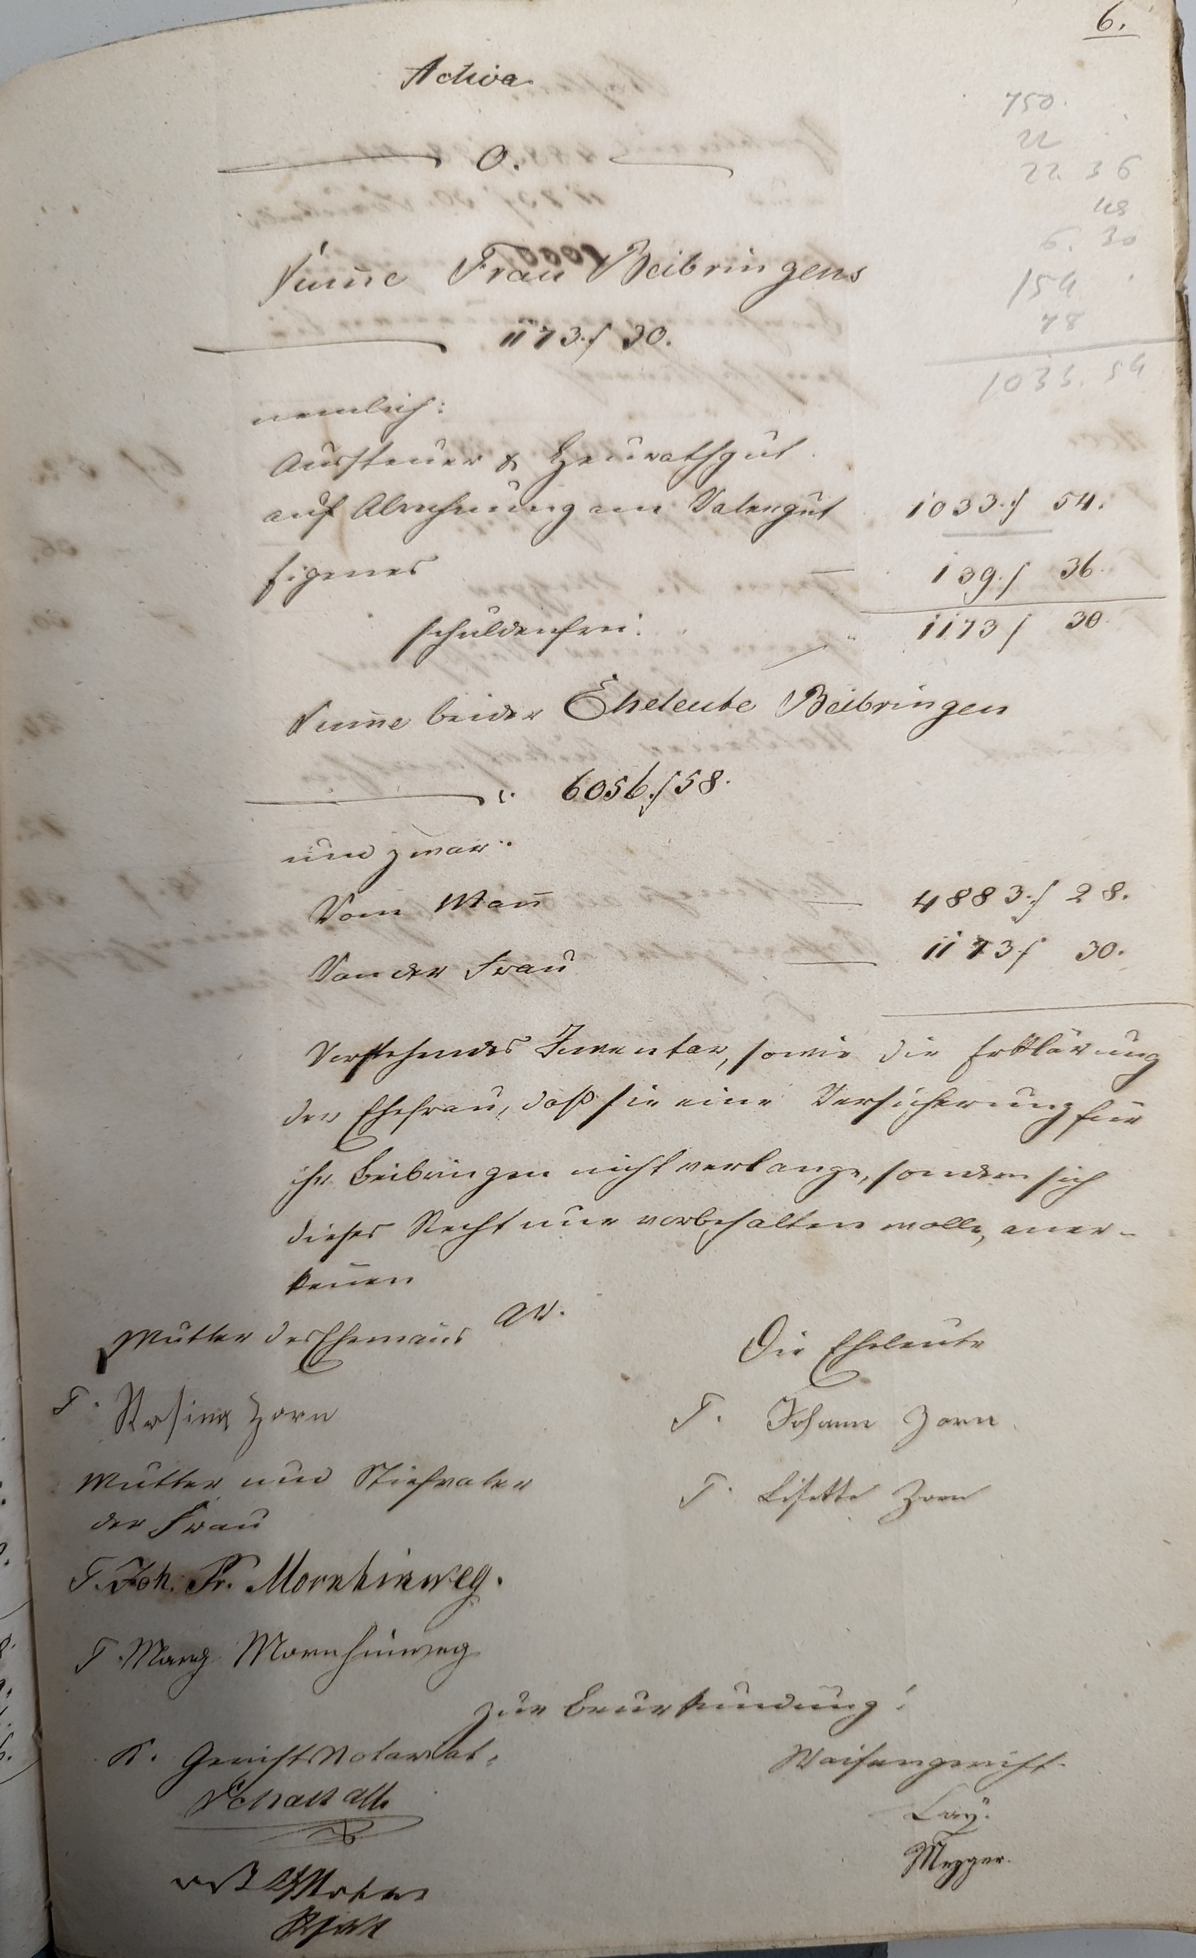 6.
Activa
0.
750.
22
22. 36
48
6. 30
154
78
1033. 54
Sum̅e Frau Beibringens
1173 f 30.
nemlich:
Aussteuer & Heurathgut
auf Abrechnung am Vatergut 1033. f 54.
Eigenes — 139. f 36.
schuldenfrei. 1173 f 30.
Sum̅e beider Eheleute Beibringen
6056. f 58.
und zwar.
Vom Man̅ — 4883. f 28.
Von der Frau — 1173 f 30.
Vorstehendes Inventar, sowie die Erklärung
der Ehefrau, daß sie eine Versicherung für
ihr Beibringen nicht verlange, sondern sich
dieses Recht nur vorbehalten wolle, aner-
ken̅en
Mutter des Ehemans
Die Eheleute
T. Rosina Zorn
T. Johann Zorn
Mutter und Stiefvater
der Frau
T. Lisette Zorn
T. Joh. Fr. Mornhinweg.
T. Marg. Mornhinweg
zur Beurkundung!
K. Gerichts Notariat.
Waisengericht.
Lay.
Mezger.